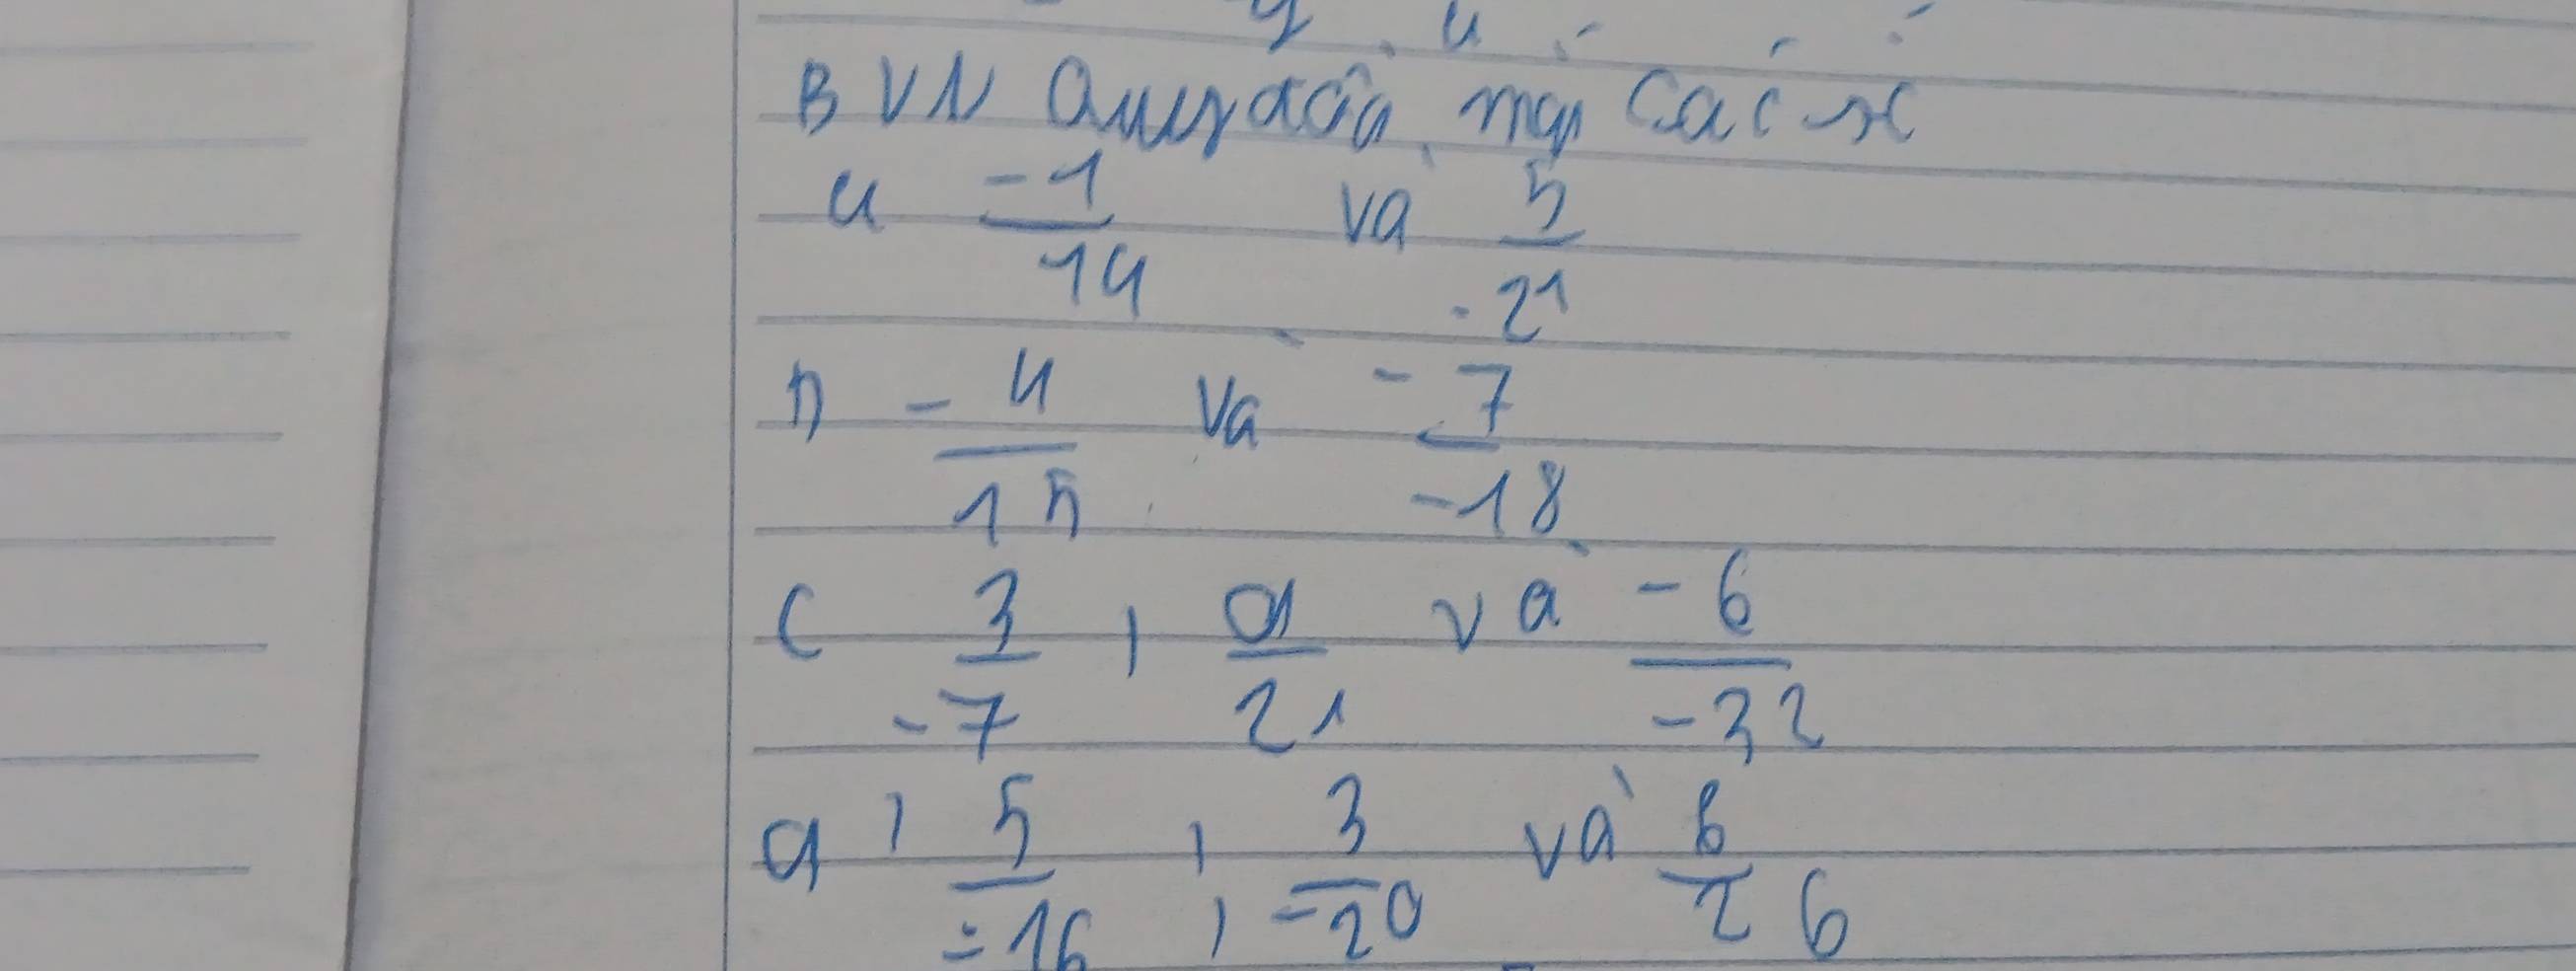 BVN Quy đồng mẫu các số
a -1/14 và 5/-21
b -4/15 và -7/-18
c 3/-7 , 9/21 và -6/-32
d, 5/-16 , 3/-20 và 6/26